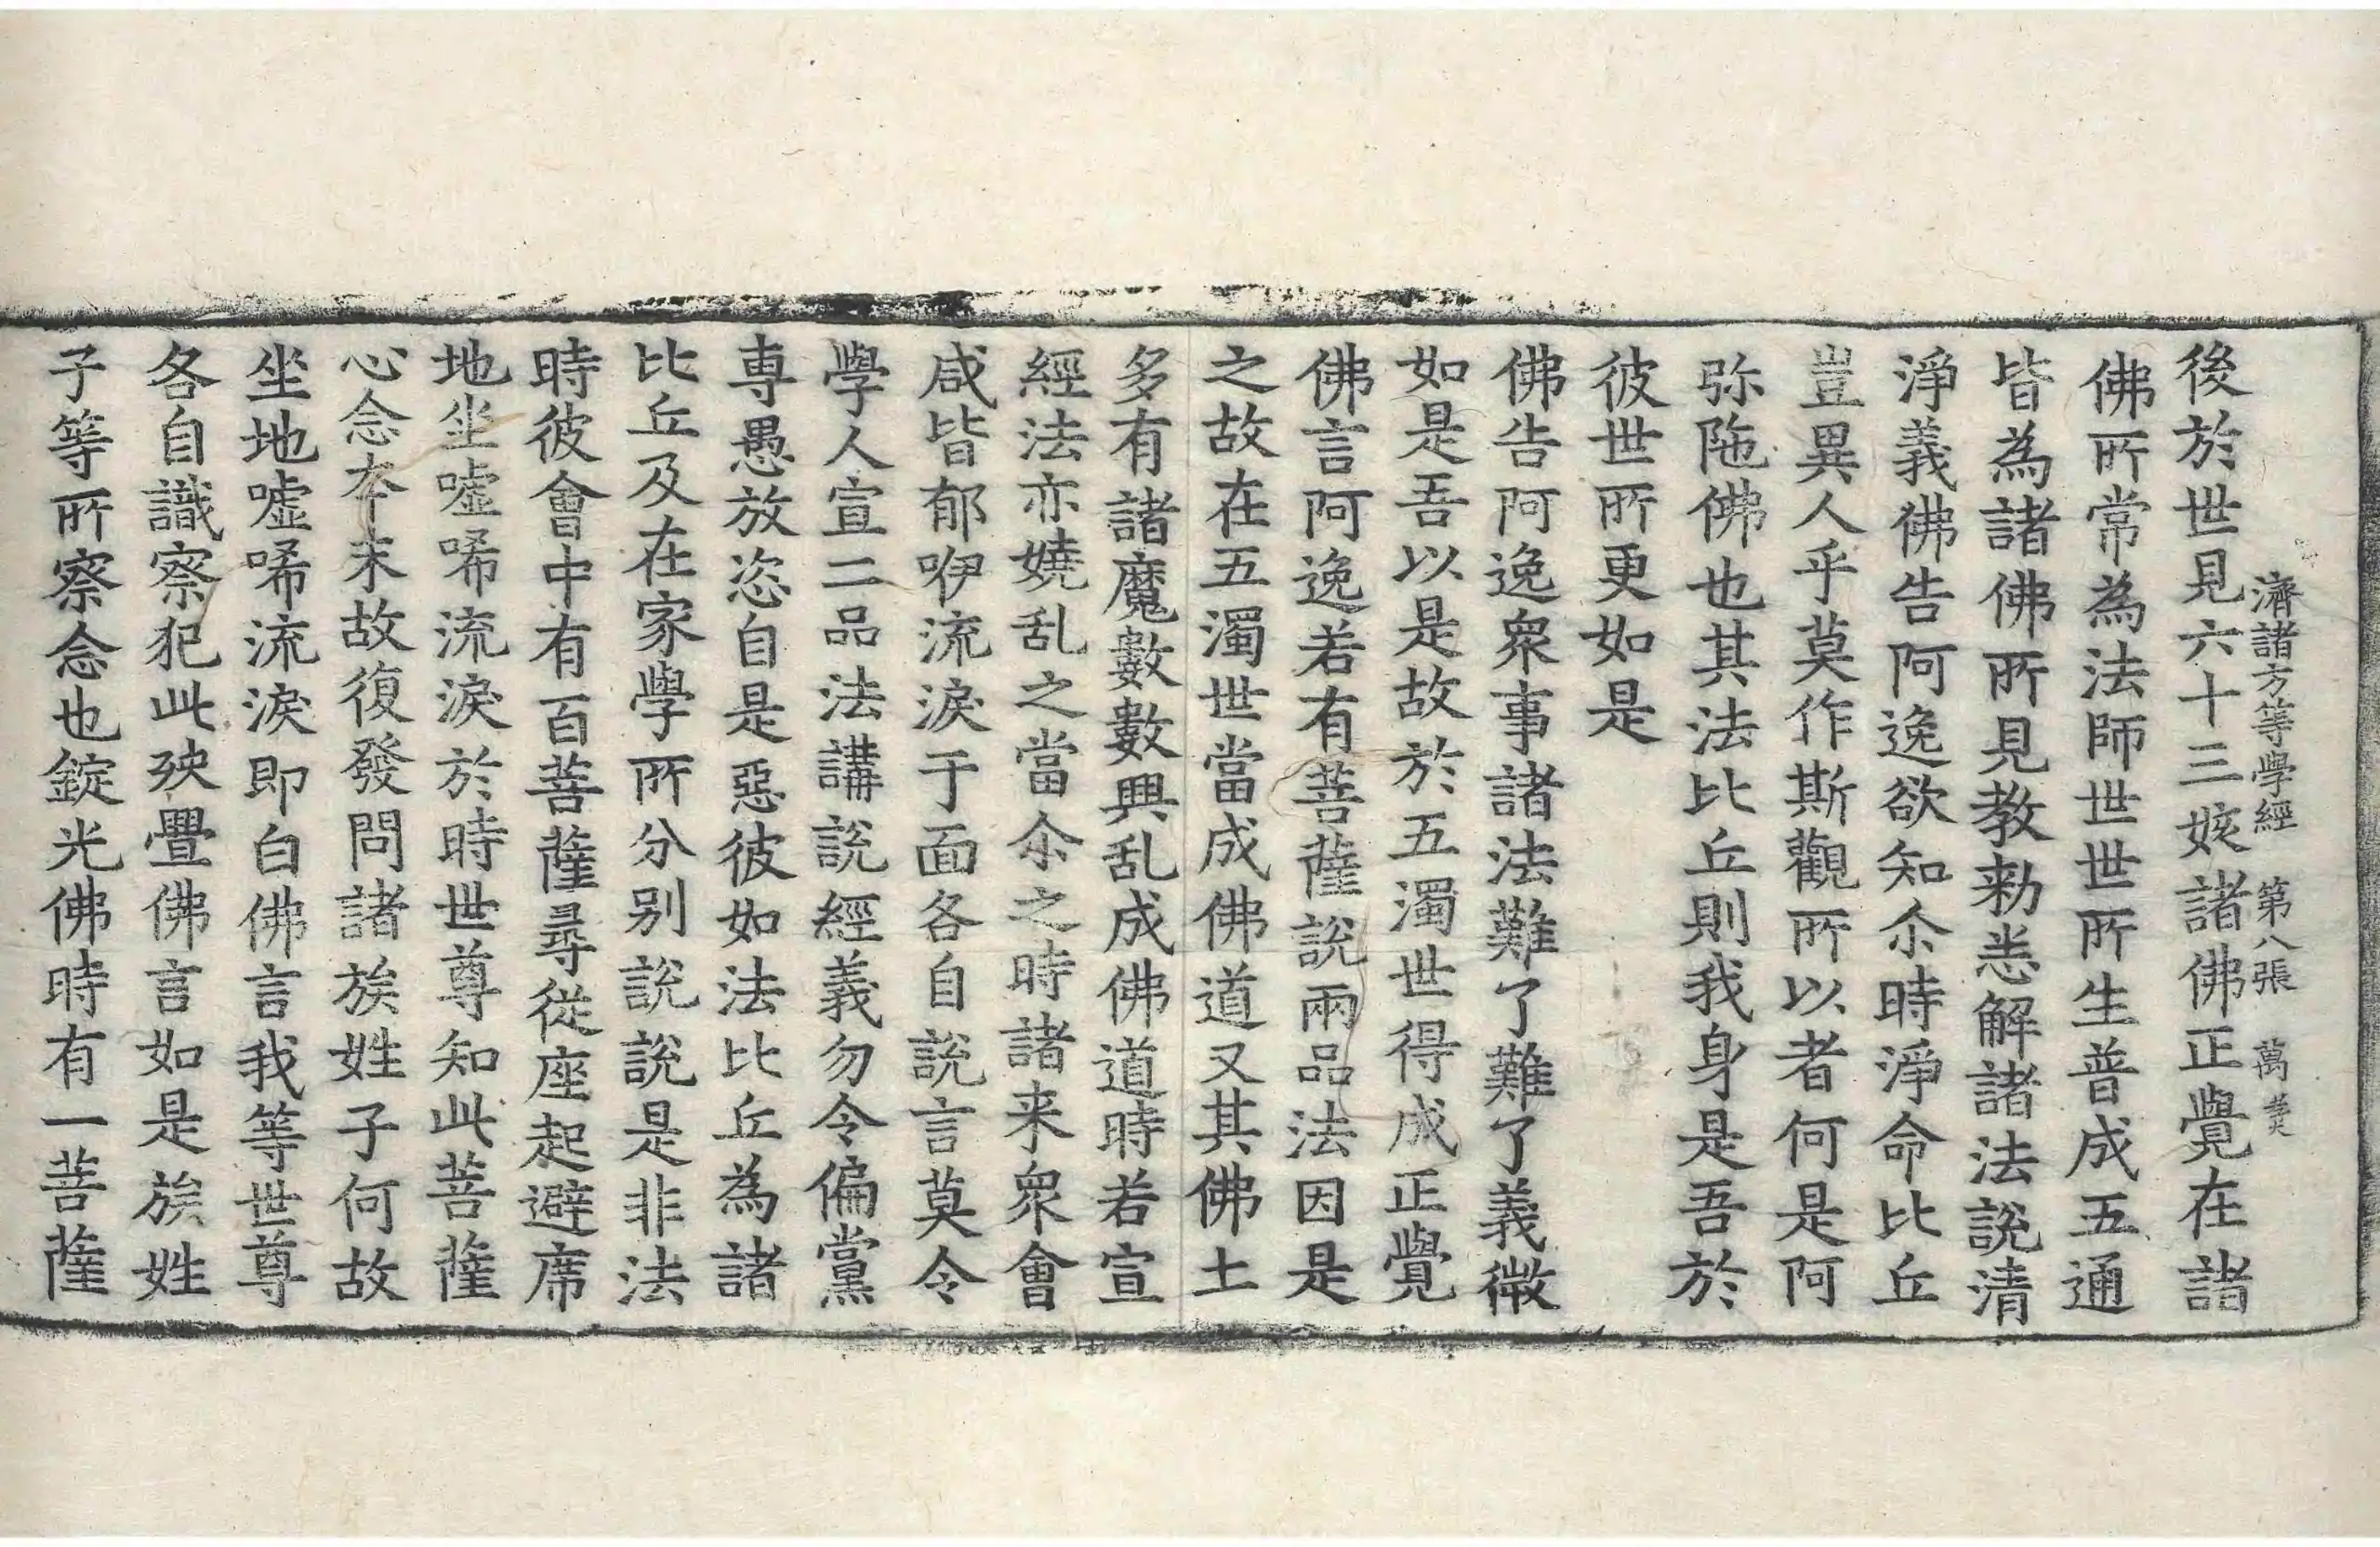 濟諸方等學經　第八張　萬
後於世見六十三姟諸佛正覺在諸
佛所常為法師世世所生普成五通
皆為諸佛所見教勑悉解諸法說清
淨義佛告阿逸欲知尒時淨命比丘
豈異人乎莫作斯觀所以者何是阿
弥陁佛也其法比丘則我身是吾於
彼世所更如是
佛告阿逸衆事諸法難了難了義微
如是吾以是故於五濁世得成正覺
佛言阿逸若有菩薩說兩品法因是
之故在五濁世當成佛道又其佛土
多有諸魔數數興乱成佛道時若宣
經法亦嬈乱之當尒之時諸来衆會
咸皆郁咿流淚于面各自說言莫令
學人宣二品法講說經義勿令偏黨
専愚放恣自是惡彼如法比丘為諸
比丘及在家學所分别說說是非法
時彼會中有百菩薩尋從座起避席
地坐嘘唏流淚於時世尊知此菩薩
心念夲末故復發問諸族姓子何故
坐地嘘唏流淚即白佛言我等世尊
各自識察犯此殃舋佛言如是族姓
子等所察念也錠光佛時有一菩薩